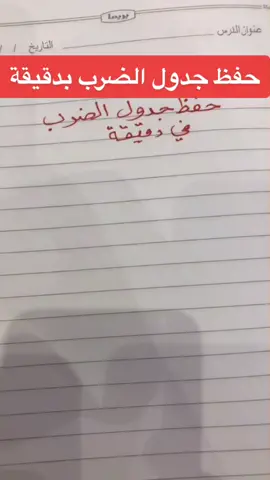 عنوان الدرس
التاريخ / /
حفظ جدول الضرب بدقيقة
حفظ جدول الضرب
في دقيقة